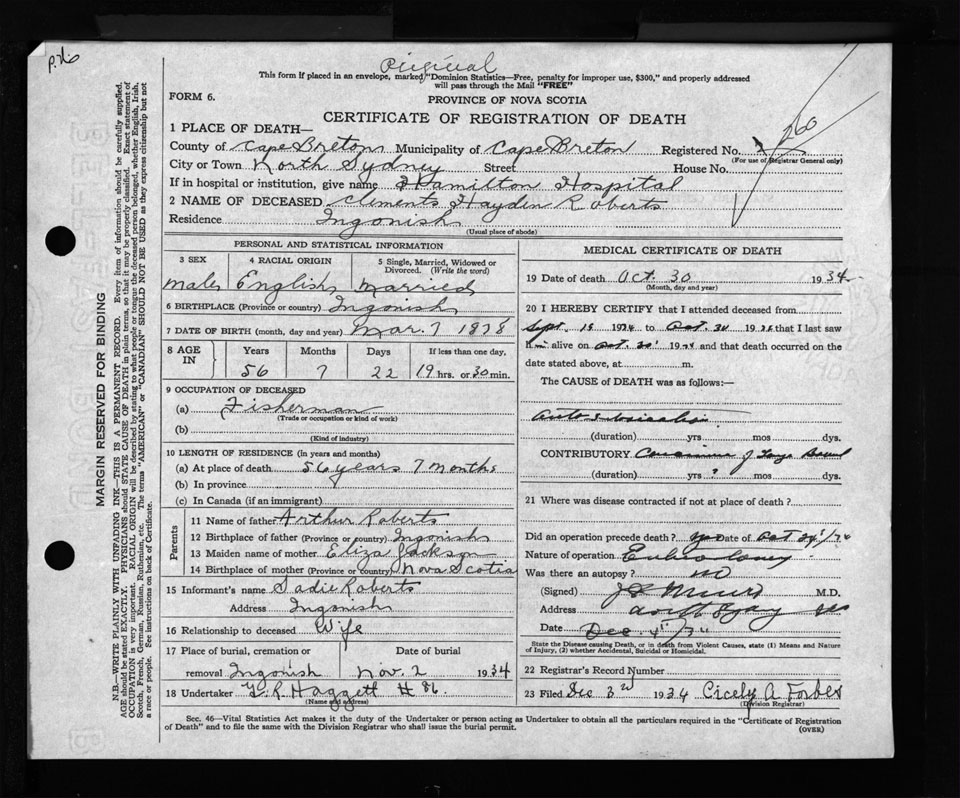 P.76
Original
This form if placed in an envelope, marked "Dominion Statistics—Free, penalty for improper use, $300," and properly addressed
will pass through the Mail "FREE"
FORM 6.
PROVINCE OF NOVA SCOTIA
CERTIFICATE OF REGISTRATION OF DEATH
1 PLACE OF DEATH—
County of Cape Breton Municipality of Cape Breton Registered No. 260
(For use of Registrar General only)
City or Town North Sydney Street House No.
If in hospital or institution, give name Hamilton Hospital
2 NAME OF DECEASED Clements Hayden Roberts
Residence Ingonish
(Usual place of abode)
PERSONAL AND STATISTICAL INFORMATION
3 SEX 4 RACIAL ORIGIN 5 Single, Married, Widowed or
Divorced. (Write the word)
male English married
6 BIRTHPLACE (Province or country) Ingonish
7 DATE OF BIRTH (month, day and year) Mar. 7 1878
8 AGE IN Years Months Days If less than one day,
56 7 22 19 hrs. or 30 min.
9 OCCUPATION OF DECEASED
(a) Fisherman
(Trade or occupation or kind of work)
(b)
(Kind of industry)
10 LENGTH OF RESIDENCE (in years and months)
(a) At place of death 56 years 7 months
(b) In province
(c) In Canada (if an immigrant)
Parents
11 Name of father Arthur Roberts
12 Birthplace of father (Province or country) Ingonish
13 Maiden name of mother Eliza Jackson
14 Birthplace of mother (Province or country) Nova Scotia
15 Informant's name Sadie Roberts
Address Ingonish
16 Relationship to deceased Wife
17 Place of burial, cremation or Date of burial
removal Ingonish Nov. 2 1934
18 Undertaker R. Haggett
(Name and address)
MEDICAL CERTIFICATE OF DEATH
19 Date of death Oct. 30 1934
(Month, day and year)
20 I HEREBY CERTIFY that I attended deceased from
Sept. 15 1934 to Oct. 30 19 that I last saw
him alive on Oct. 30 1934 and that death occurred on the
date stated above, at m.
The CAUSE of DEATH was as follows:—
(duration) yrs mos dys.
CONTRIBUTORY Carcinoma of Large Bowel
(duration) yrs ? mos dys.
21 Where was disease contracted if not at place of death?
Did an operation precede death? yes Date of Oct
Nature of operation
Was there an autopsy? no
(Signed) M.D.
Address
Date Dec.
State the Disease causing Death, or in death from Violent Causes, state (1) Means and Nature of
Injury, (2) whether Accidental, Suicidal or Homicidal.
22 Registrar's Record Number
23 Filed Dec 3rd 1934 Cicely A Forbes
(Division Registrar)
Sec. 46—Vital Statistics Act makes it the duty of the Undertaker or person acting as Undertaker to obtain all the particulars required in the "Certificate of Registration
of Death" and to file the same with the Division Registrar who shall issue the burial permit.
(OVER)
MARGIN RESERVED FOR BINDING
N.B.—WRITE PLAINLY WITH UNFADING INK—THIS IS A PERMANENT RECORD. Every item of information should be carefully supplied.
AGE should be stated EXACTLY. PHYSICIANS should STATE CAUSE OF DEATH in plain terms, so that it may be properly classified. Exact statement of
OCCUPATION is very important. RACIAL ORIGIN will be described by stating to what people or tongue the deceased person belonged, whether English, Irish,
Scotch, French, German, Russian, Ruthenian, etc. The terms "AMERICAN" or "CANADIAN" SHOULD NOT BE USED as they express citizenship but not
a race or people. See instructions on back of Certificate.